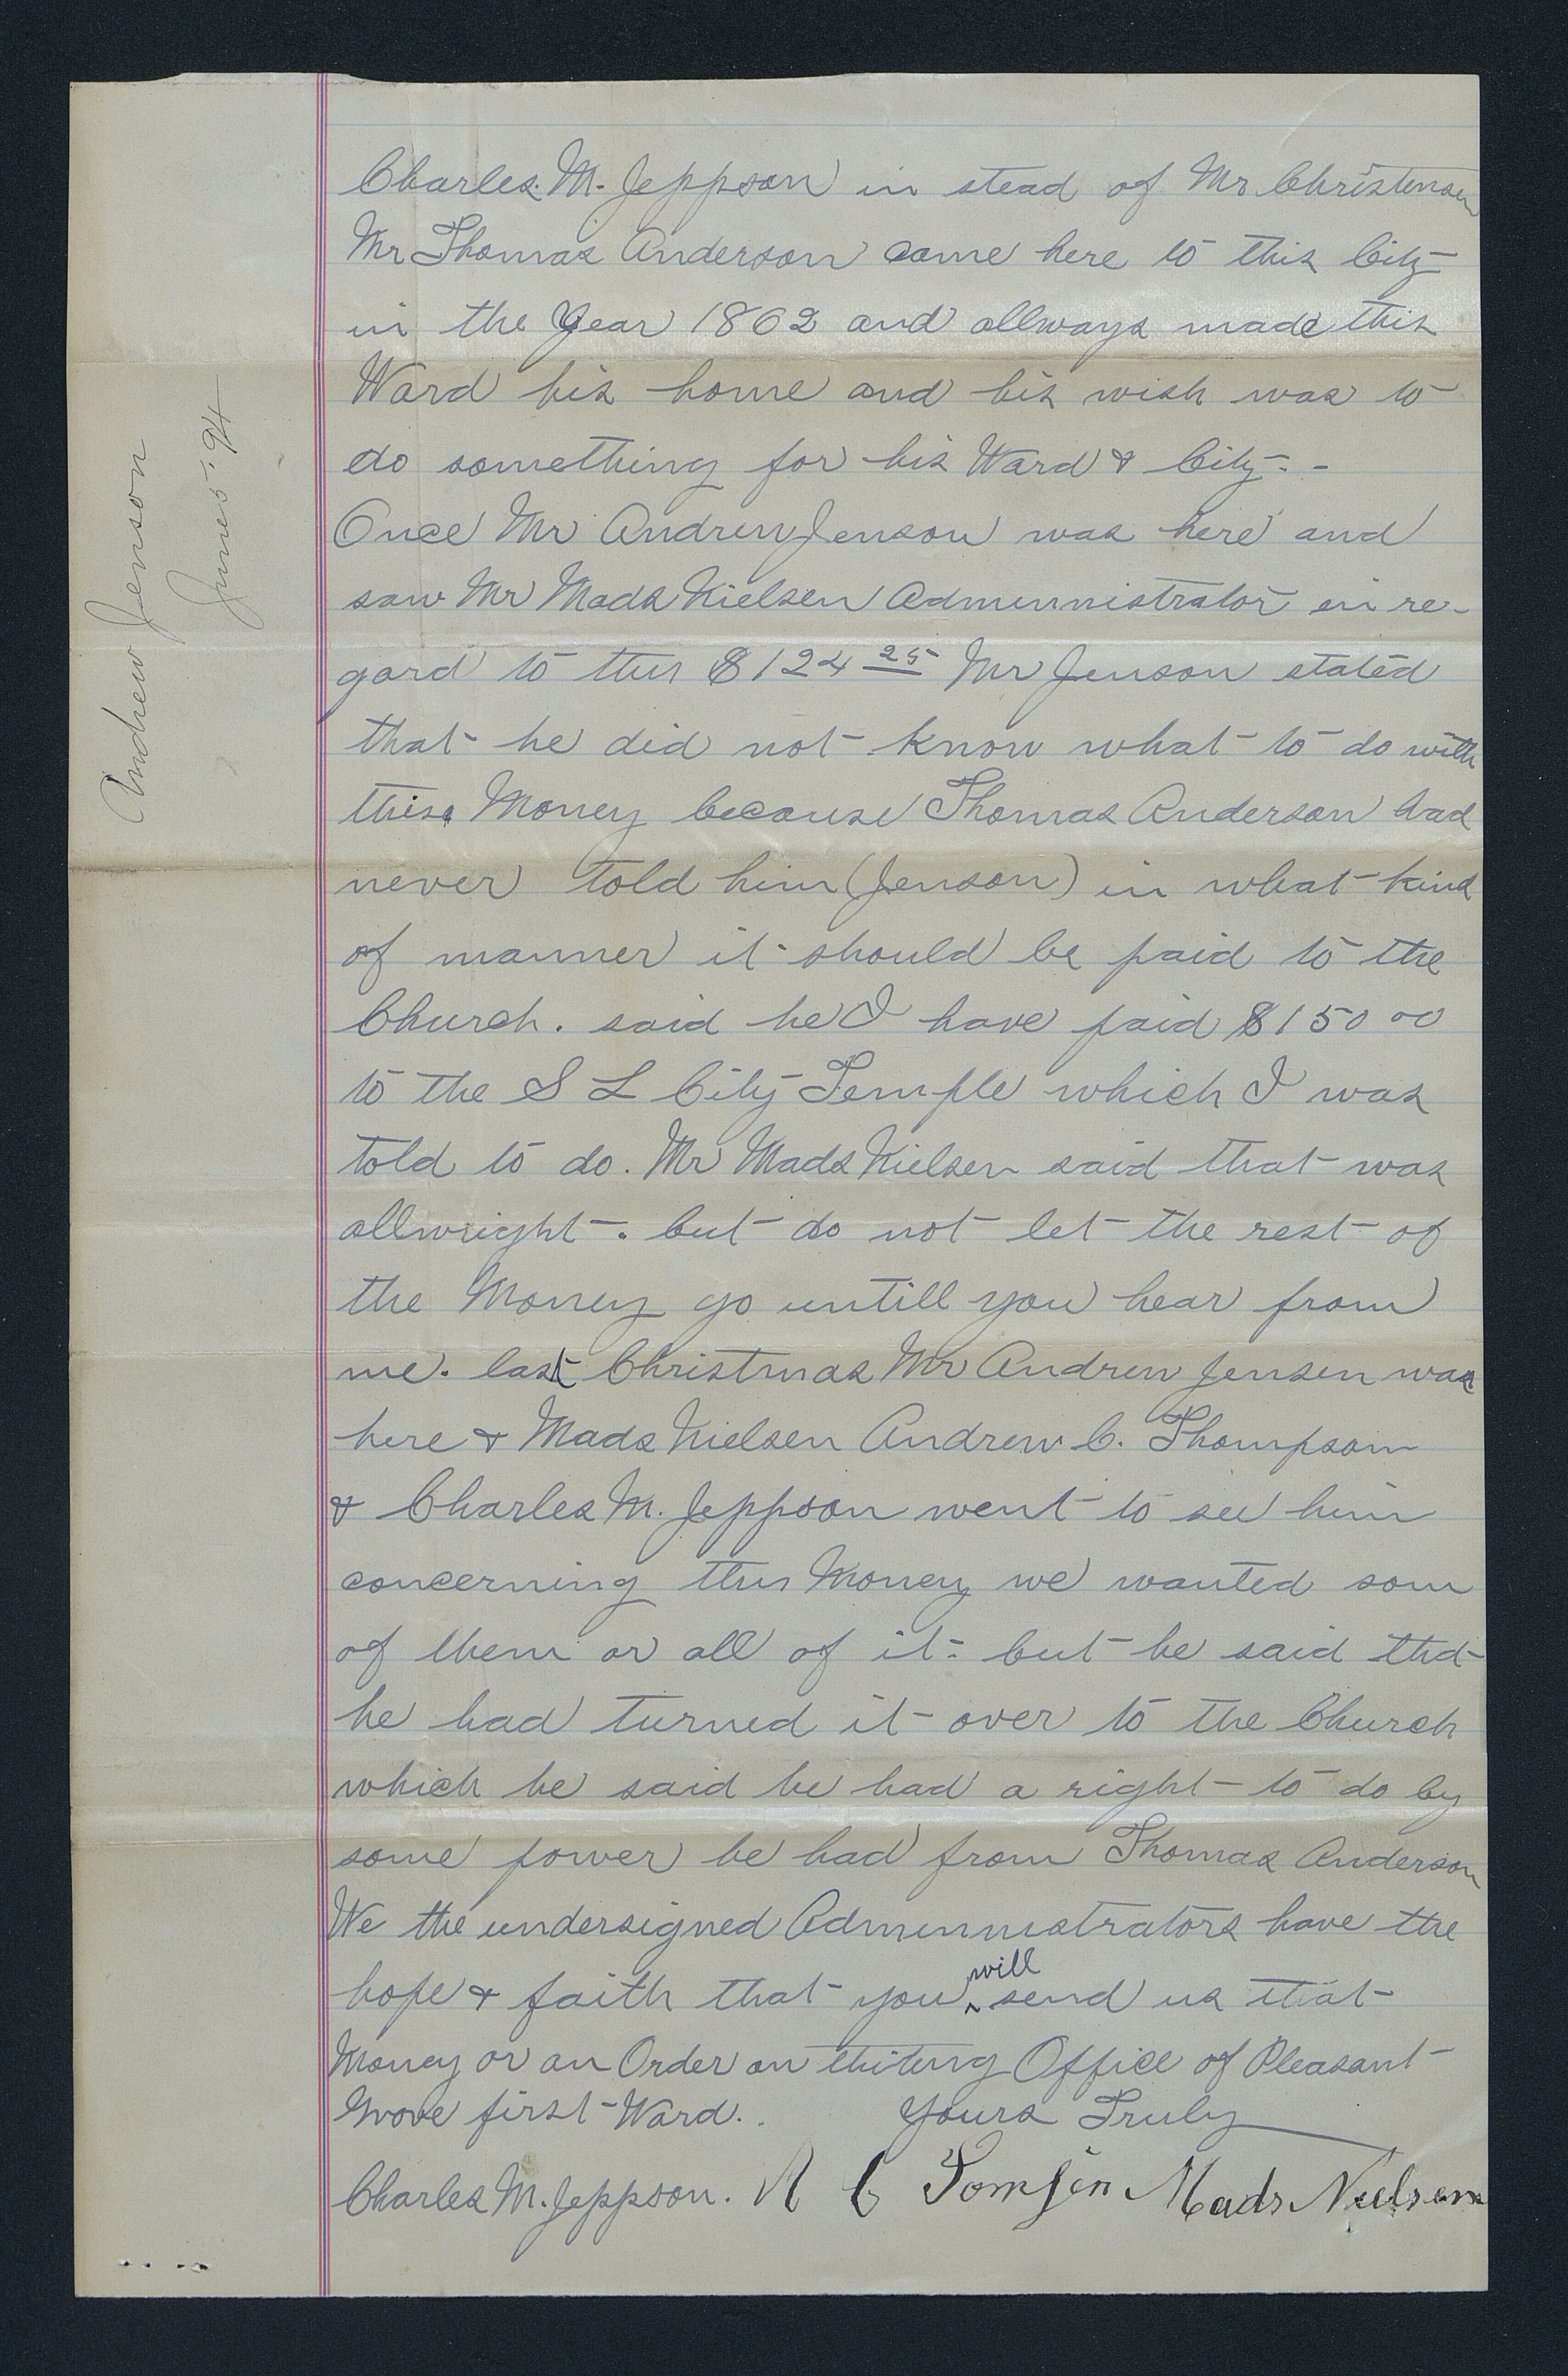 Charles. M. Jeppson in stead of Mr Christensen
Mr Thomas Anderson came here to this City
in the Year 1862 and allways made this
Ward his home and his wish was to
do something for his Ward & City. -
Once Mr Andrew Jenson was here and
saw Mr Mads Nielsen Admininistrator in re-
gard to this $124 25 Mr Jenson stated
that he did not know what to do with
this Money because Thomas Anderson had
never told him (Jenson) in what kind
of manner it should be paid to the
Church. said he I have paid $150 00
to the S L City Temple which I was
told to do. Mr Mads Nielsen said that was
allwright. but do not let the rest of
the Money go untill you hear from
me. last Christmas Mr Andrew Jensen was
here & Mads Nielsen Andrew C. Thompson
& Charles M. Jeppson went to see him
concerning this Money we wanted som
of them or all of it: but he said that
he had turned it over to the Church
which he said he had a right to do by
some power he had from Thomas Anderson
We the undersigned Admininistrators have the
hope & faith that you will send us that
Money or an Order on thiteng Office of Pleasant
Grove first Ward..
Yours Truly
Charles M. Jeppson. A C Tomsen Mads Nielsen
Andrew Jenson
June 5. 94